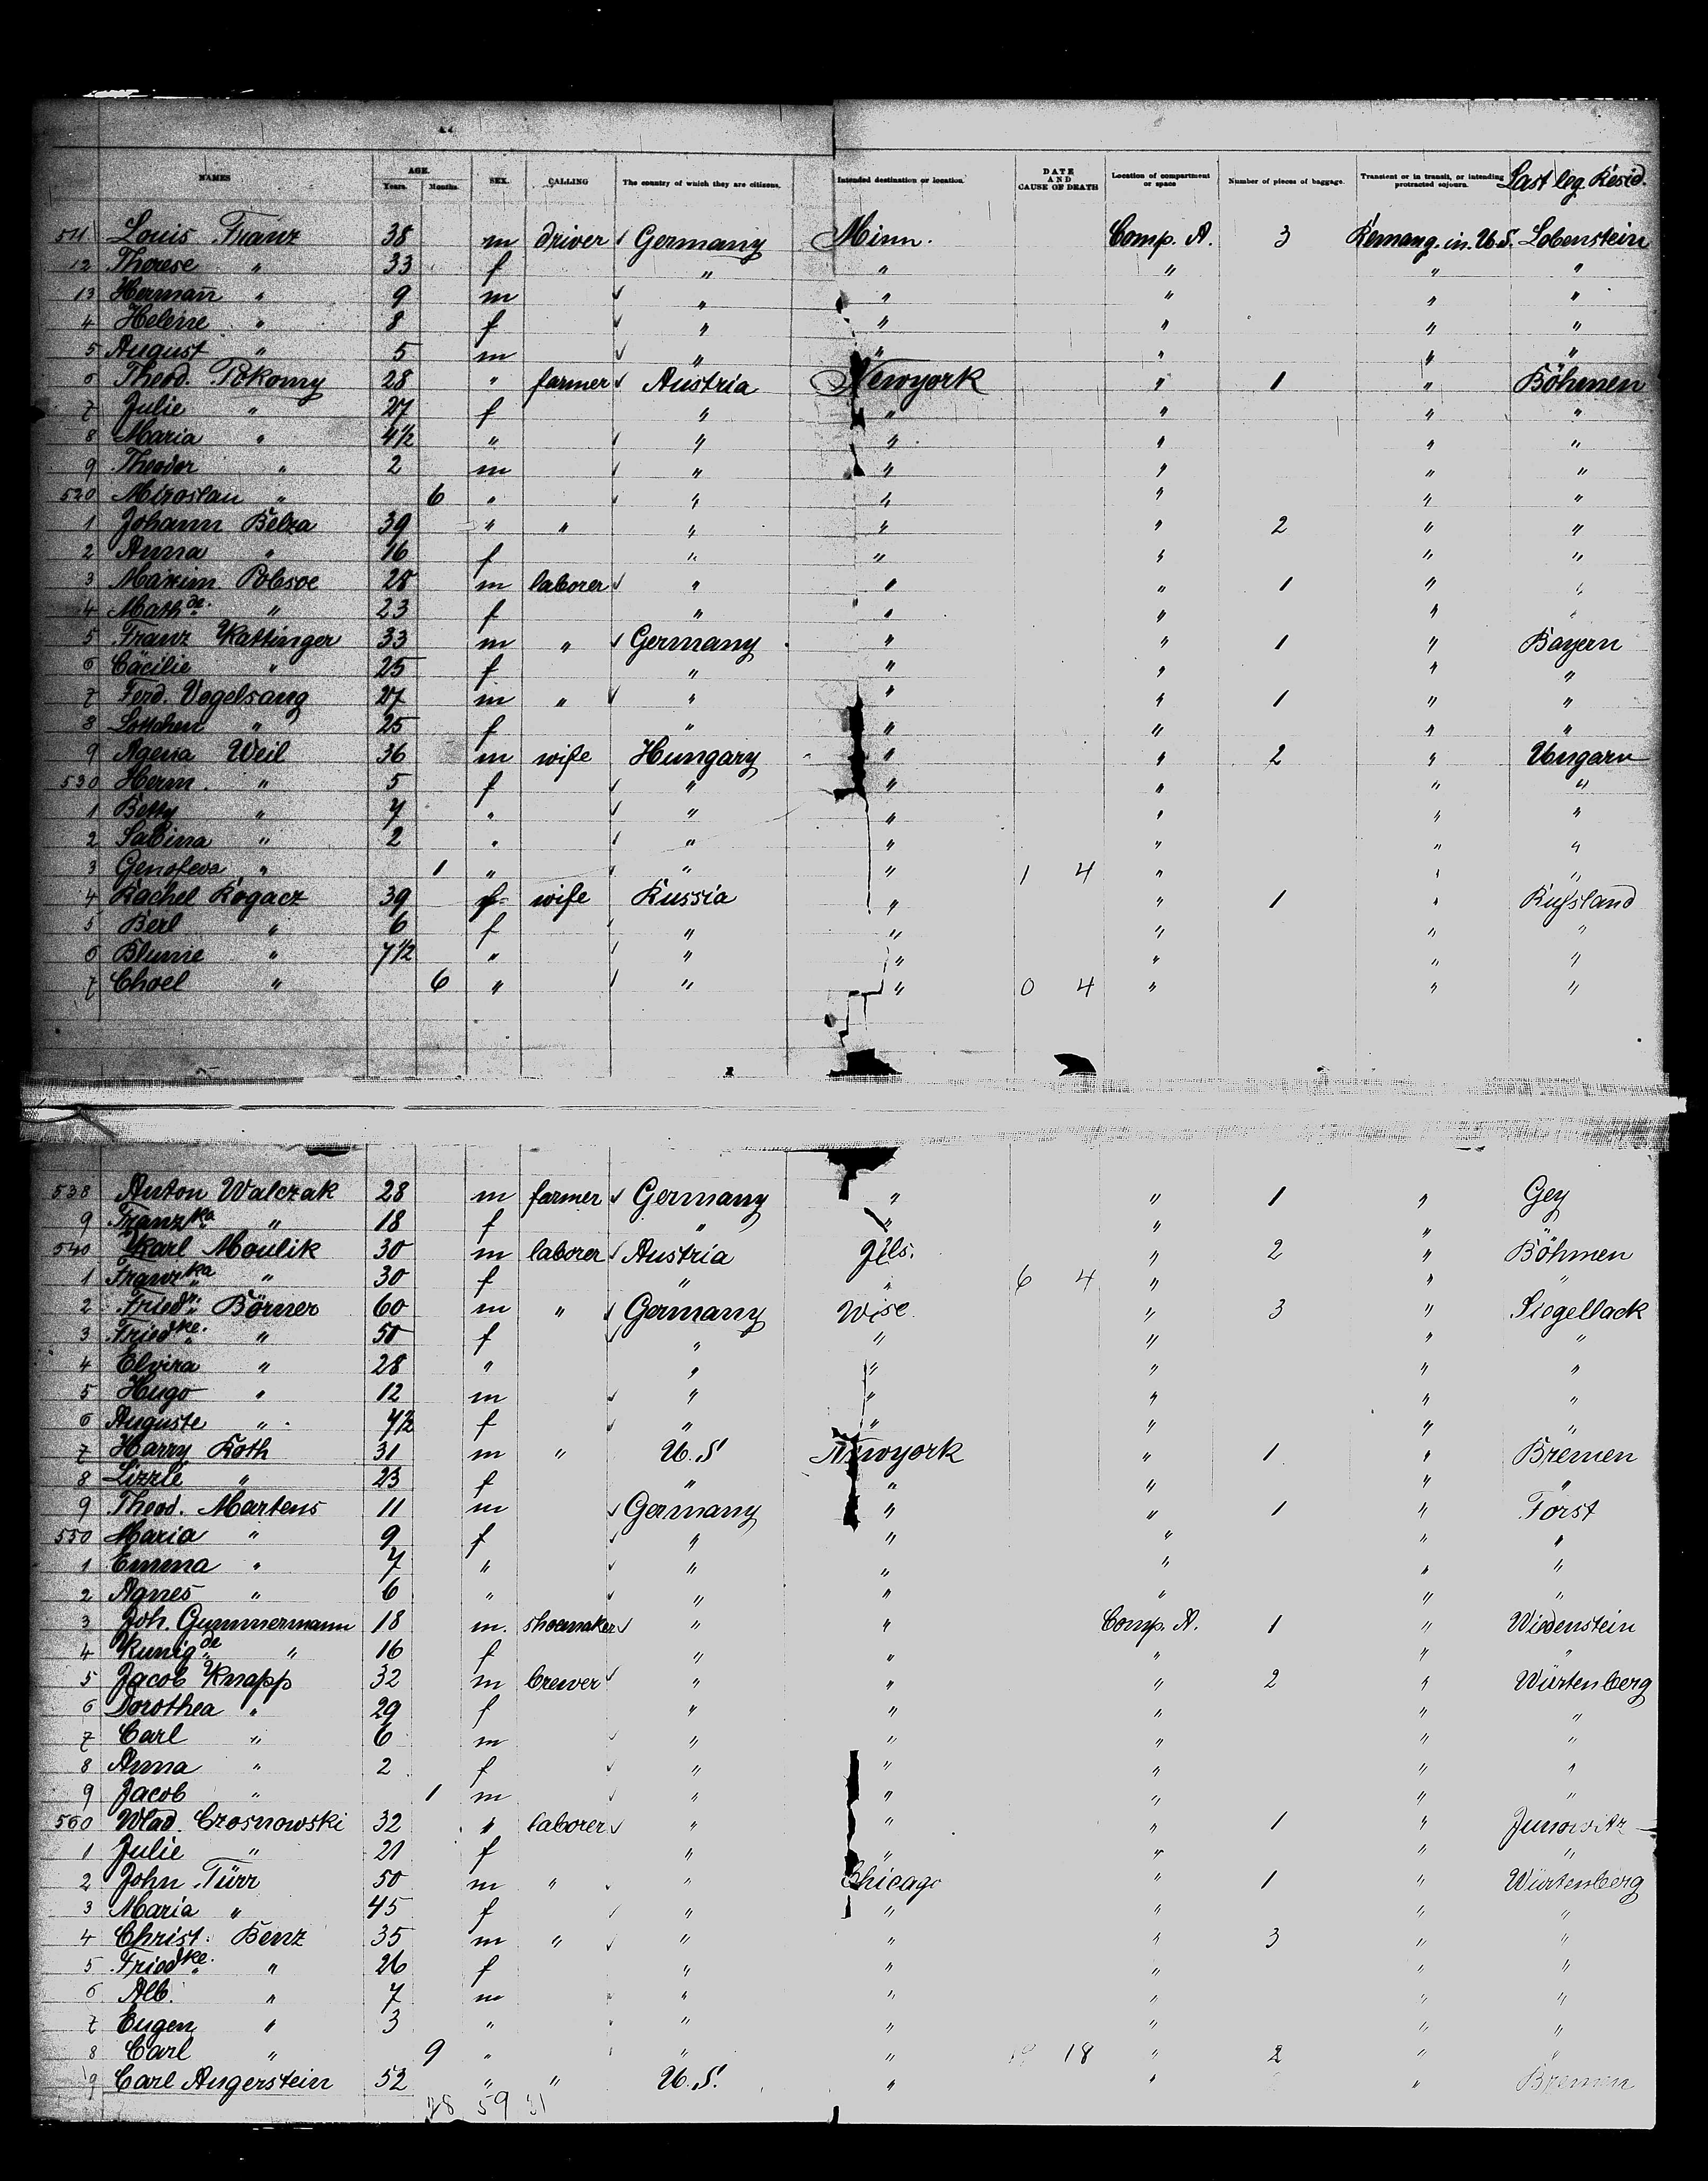 NAMES AGE. Years. Months. SEX. CALLING The country of which they are citizens. Intended destination or location. DATE AND CAUSE OF DEATH Location of compartment or space Number of pieces of baggage. Transient or in transit, or intending protracted sojourn. Last leg. Resid.
511 Louis Franz 38 m driver Germany Minn. Comp. A. 3 Remang. in U.S. Lobenstein
12 Therese " 33 f " " " " "
13 Hermañ " 9 m " " " " "
4 Helene " 8 f " " " " "
5 August " 5 m " " " " "
6 Theod. Pokorny 28 " farmer Austria Newyork " 1 " Böhmen
7 Julie " 27 f " " " " "
8 Maria " 4½ " " " " " "
9 Theodor " 2 m " " " " "
520 Miroslau " 6 " " " " " "
1 Johann Belza 39 " " " " " 2 " "
2 Anna " 16 f " " " " "
3 Maxim Pobsoe 28 m laborer " " " 1 " "
4 Mathde. " 23 f " " " " "
5 Franz Kattinger 33 m " Germany " " 1 " Bayern
6 Cäcilie " 25 f " " " " "
7 Ferd. Vogelsang 27 m " " " " 1 " "
8 Lottchen " 25 f " " " " "
9 Agena Weil 36 m wife Hungary " " 2 " Ungarn
530 Herm. " 5 f " " " " "
1 Betty " 7 " " " " " "
2 Sabina " 2 " " " " " "
3 Genofeva " 1 " " " 1 4 " " "
4 Rachel Rogacz 39 f wife Russia " " 1 " Rußland
5 Berl " 6 f " " " " "
6 Blume " 7½ " " " " " "
7 Choel " 6 " " " 0 4 " " "
538 Anton Walczak 28 m farmer Germany " " 1 " Gey
9 Franzka " 18 f " " " "
540 Karl Moulik 30 m laborer Austria Ills. " 2 " Böhmen
1 Franzka " 30 f " " 6 4 " " "
2 Friedr. Börner 60 m " Germany Wisc. " 3 " Siegelback
3 Friedke. " 50 f " " " " "
4 Elvira " 28 " " " " " "
5 Hugo " 12 m " " " " "
6 Auguste " 4½ f " " " " "
7 Harry Roth 31 m " U.S Newyork " 1 " Bremen
8 Lizzie " 23 f " " " " "
9 Theod. Martens 11 m Germany " " 1 " Forst
550 Maria " 9 f " " " " "
1 Emma " 7 " " " " " "
2 Agnes " 6 " " " " " "
3 Joh. Gummermann 18 m. shoemaker " " Comp. A. 1 " Widenstein
4 Kunigde " 16 f " " " " "
5 Jacob Knapp 32 m brewer " " " 2 " Würtenberg
6 Dorothea " 29 f " " " " "
7 Carl " 6 m " " " " "
8 Anna " 2 f " " " " "
9 Jacob " 1 m " " " " "
560 Wlad. Crosnowski 32 " laborer " " " 1 " Junowitz
1 Julie " 21 f " " " " "
2 John Türr 50 m " " Chicago " 1 " Würtenberg
3 Maria " 45 f " " " " "
4 Christ. Benz 35 m " " " " 3 " "
5 Friedke. " 26 f " " " " "
6 Alb. " 7 m " " " " "
7 Eugen " 3 " " " " " "
8 Carl " 9 " " " 18 " 2 " "
9 Carl Angerstein 52 " " U.S. " " " Bremen
28 59 31